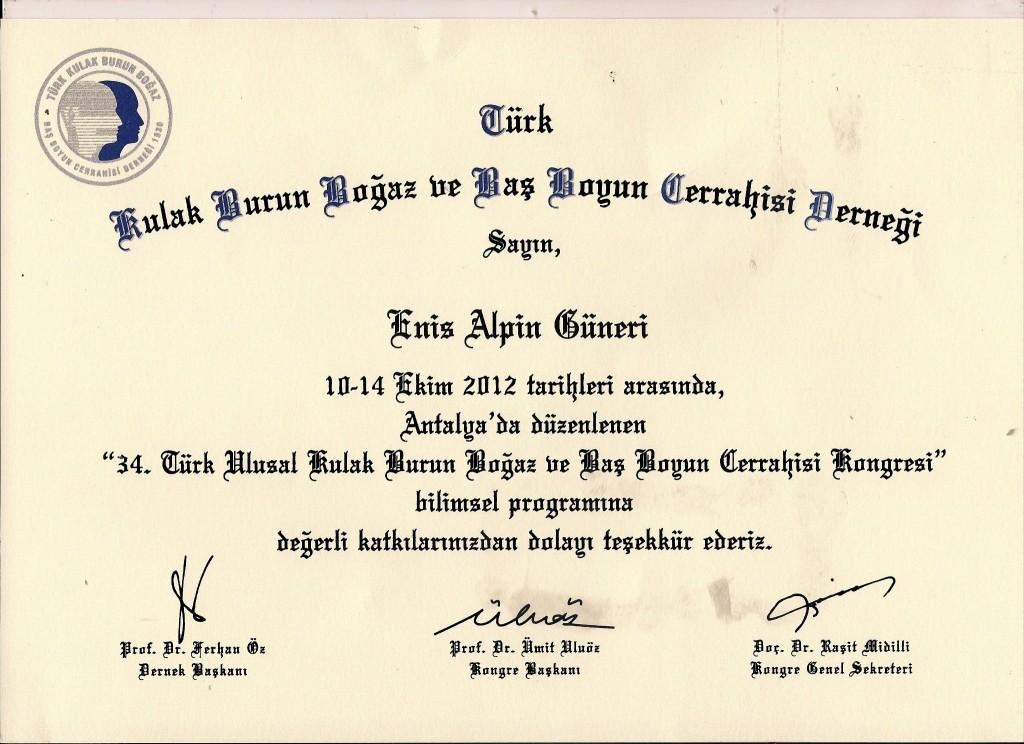 TÜRK KULAK BURUN BOĞAZ
BAŞ BOYUN CERRAHİSİ DERNEĞİ 1930
Türk
Kulak Burun Boğaz ve Baş Boyun Cerrahisi Derneği
Sayın,
Enis Alpin Güneri
10-14 Ekim 2012 tarihleri arasında,
Antalya'da düzenlenen
"34. Türk Ulusal Kulak Burun Boğaz ve Baş Boyun Cerrahisi Kongresi"
bilimsel programına
değerli katkılarınızdan dolayı teşekkür ederiz.
ülnöz
Prof. Dr. Ferhan Öz
Dernek Başkanı
Prof. Dr. Ümit Uluöz
Kongre Başkanı
Doç. Dr. Raşit Midilli
Kongre Genel Sekreteri